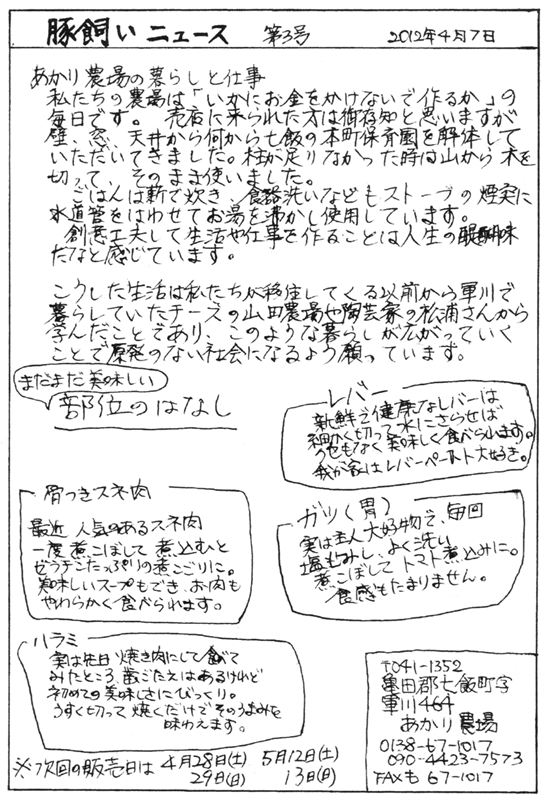 豚飼いニュース 第3号 2012年4月7日
あかり農場の暮らしと仕事
私たちの農場は「いかにお金をかけないで作るか」の
毎日です。売店に来られた方は御存知と思いますが
壁、窓、天井から何から七飯の本町保育園を解体して
いただいてきました。柱が足りなかった時は山から木を
切って、そのまま使いました。
ごはんは薪で炊き、食器洗いなどもストーブの煙突に
水道管をはわせてお湯を沸かし使用しています。
創意工夫して生活や仕事を作ることは人生の醍醐味
だなと感じています。
こうした生活は私たちが移住してくる以前から軍川で
暮らしていたチーズの山田農場や陶芸家の松浦さんから
学んだことであり、このような暮らしが広がっていく
ことで原発のない社会になるよう願っています。
まだまだ美味しい
部位のはなし
レバー
新鮮で健康なレバーは
細かく切って水にさらせば
くせもなく美味しく食べられます。
我が家はレバーペースト大好き。
骨つきスネ肉
最近人気のあるスネ肉
一度煮こぼして煮込むと
ゼラチンたっぷりの煮こごりに。
美味しいスープもでき、お肉も
やわらかく食べられます。
ガツ(胃)
実は主人大好物で、毎回
塩もみし、よく洗い
煮こぼしてトマト煮込みに。
食感もたまりません。
ハラミ
実は先日焼き肉にして食べて
みたところ、歯ごたえはあるけれど
初めての美味しさにびっくり。
うすく切って焼くだけでそのうまみを
味わえます。
〒041-1352
亀田郡七飯町字
軍川464
あかり農場
0138-67-1017
090-4423-7573
FAXも 67-1017
※次回の販売日は 4月28日(土) 5月12日(土)
29日(日) 13日(日)